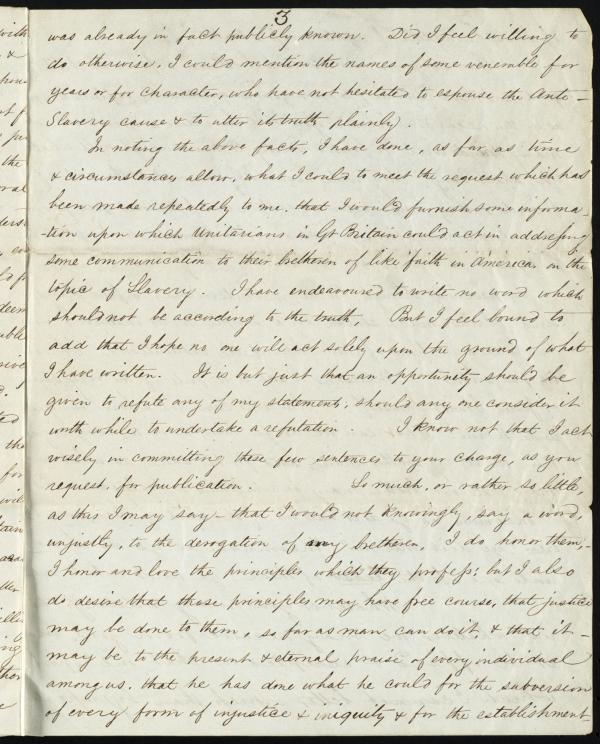 3
was already in fact publicly known. Did I feel willing to
do otherwise, I could mention the names of some venerable for
years or for character, who have not hesitated to espouse the Anti-
Slavery cause & to utter its truth plainly.
In noting the above facts, I have done, as far as time
& circumstances allow, what I could to meet the request which has
been made repeatedly to me, that I would furnish some informa-
-tion upon which Unitarians in Gt Britain could act in addressing
some communication to their bretheren of like faith in America, on the
topic of Slavery. I have endeavoured to write no word which
should not be according to the truth, But I feel bound to
add that I hope no one will act solely upon the ground of what
I have written. It is but just that an opportunity should be
given to refute any of my statements, should any one consider it
worth while to undertake a refutation. I know not that I act
wisely in committing these few sentences to your charge, as you
request, for publication. So much, or rather so little,
as this I may say - that I would not knowingly, say a word,
unjustly, to the derogation of my bretheren, I do honor them,-
I honor and love the principles which they profess; but I also
do desire that those principles may have free course, that justice
may be done to them, so far as man can do it, & that it -
may be to the present & eternal praise of every individual
among us, that he has done what he could for the subversion
of every form of injustice & iniquity & for the establishment-